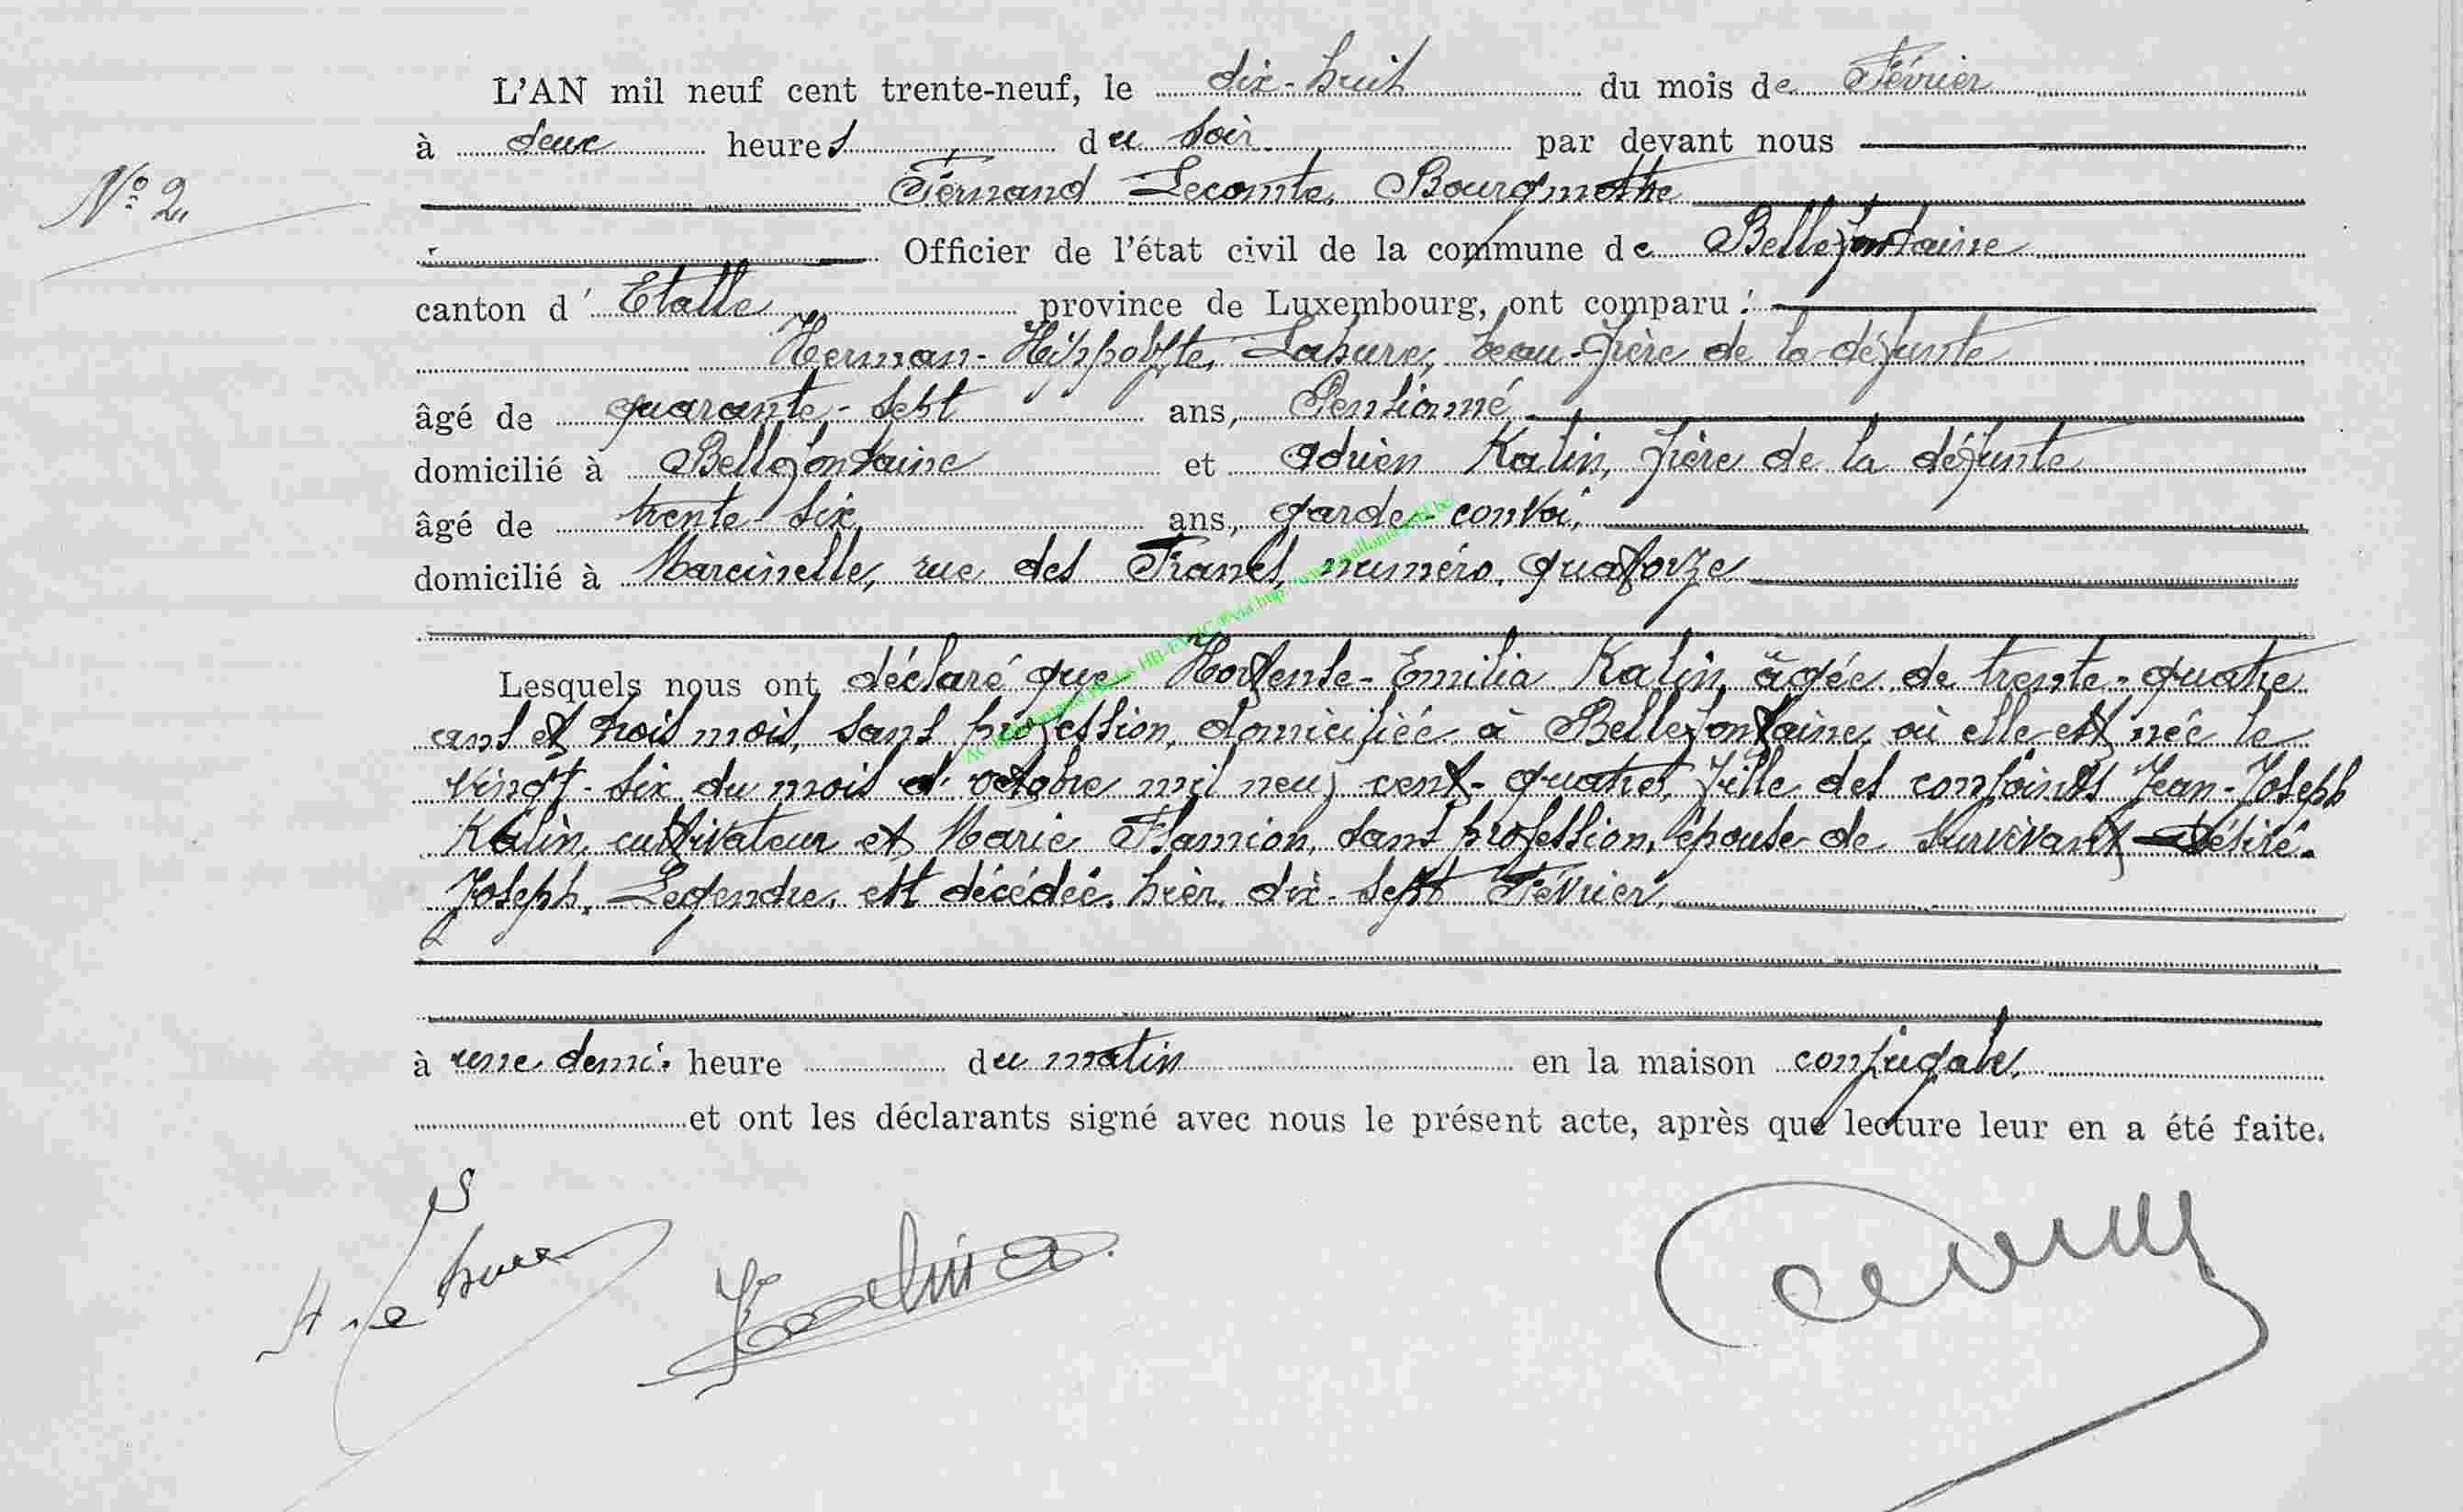 L'AN mil neuf cent trente-neuf, le dix-huit du mois de Février
à deux heures du soir par devant nous
N° 2.
Fernand Lecomte, Bourgmestre
Officier de l'état civil de la commune de Bellefontaine
canton d'Etalle province de Luxembourg, ont comparu :
Herman-Hippolyte, Lahure, beau-frère de la défunte
âgé de quarante-sept ans, Pensionné
domicilié à Bellefontaine et Adrien Kalin, frère de la défunte
âgé de trente-six ans, garde-convoi,
domicilié à Marcinelle, rue des Francs, numéro quatorze
Lesquels nous ont déclaré que Hortense-Emilia Kalin, âgée de trente-quatre
ans et trois mois, sans profession, domiciliée à Bellefontaine, où elle est née le
vingt-six du mois d'octobre mil neuf cent-quatre, fille des conjoints Jean-Joseph
Kalin, cultivateur et Marie Flamion, sans profession, épouse de survivant Désiré-
Joseph, Legendre, est décédée, hier, dix-sept Février,
à une demi-heure du matin en la maison conjugale,
et ont les déclarants signé avec nous le présent acte, après que lecture leur en a été faite.
H Lahure
Kalin A.